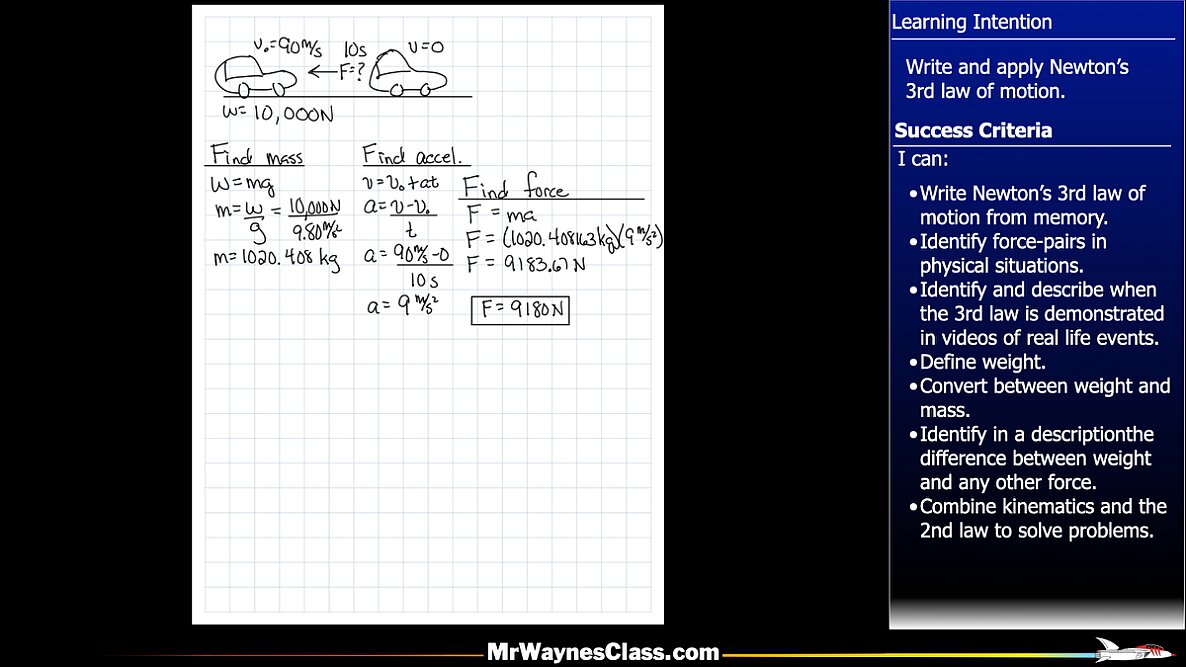 v₀=90 m/s 10s v=0
F=?
w= 10,000N
Find mass
w=mg
m=w/g = 10,000N/9.80m/s²
m=1020.408 kg
Find accel.
v=v₀+at
a=v-v₀/t
a=90m/s-0/10s
a=9 m/s²
Find force
F = ma
F = (1020.408163kg)(9 m/s²)
F = 9183.67N
F=9180N
Learning Intention
Write and apply Newton’s
3rd law of motion.
Success Criteria
I can:
•Write Newton’s 3rd law of
motion from memory.
•Identify force-pairs in
physical situations.
•Identify and describe when
the 3rd law is demonstrated
in videos of real life events.
•Define weight.
•Convert between weight and
mass.
•Identify in a descriptionthe
difference between weight
and any other force.
•Combine kinematics and the
2nd law to solve problems.
MrWaynesClass.com